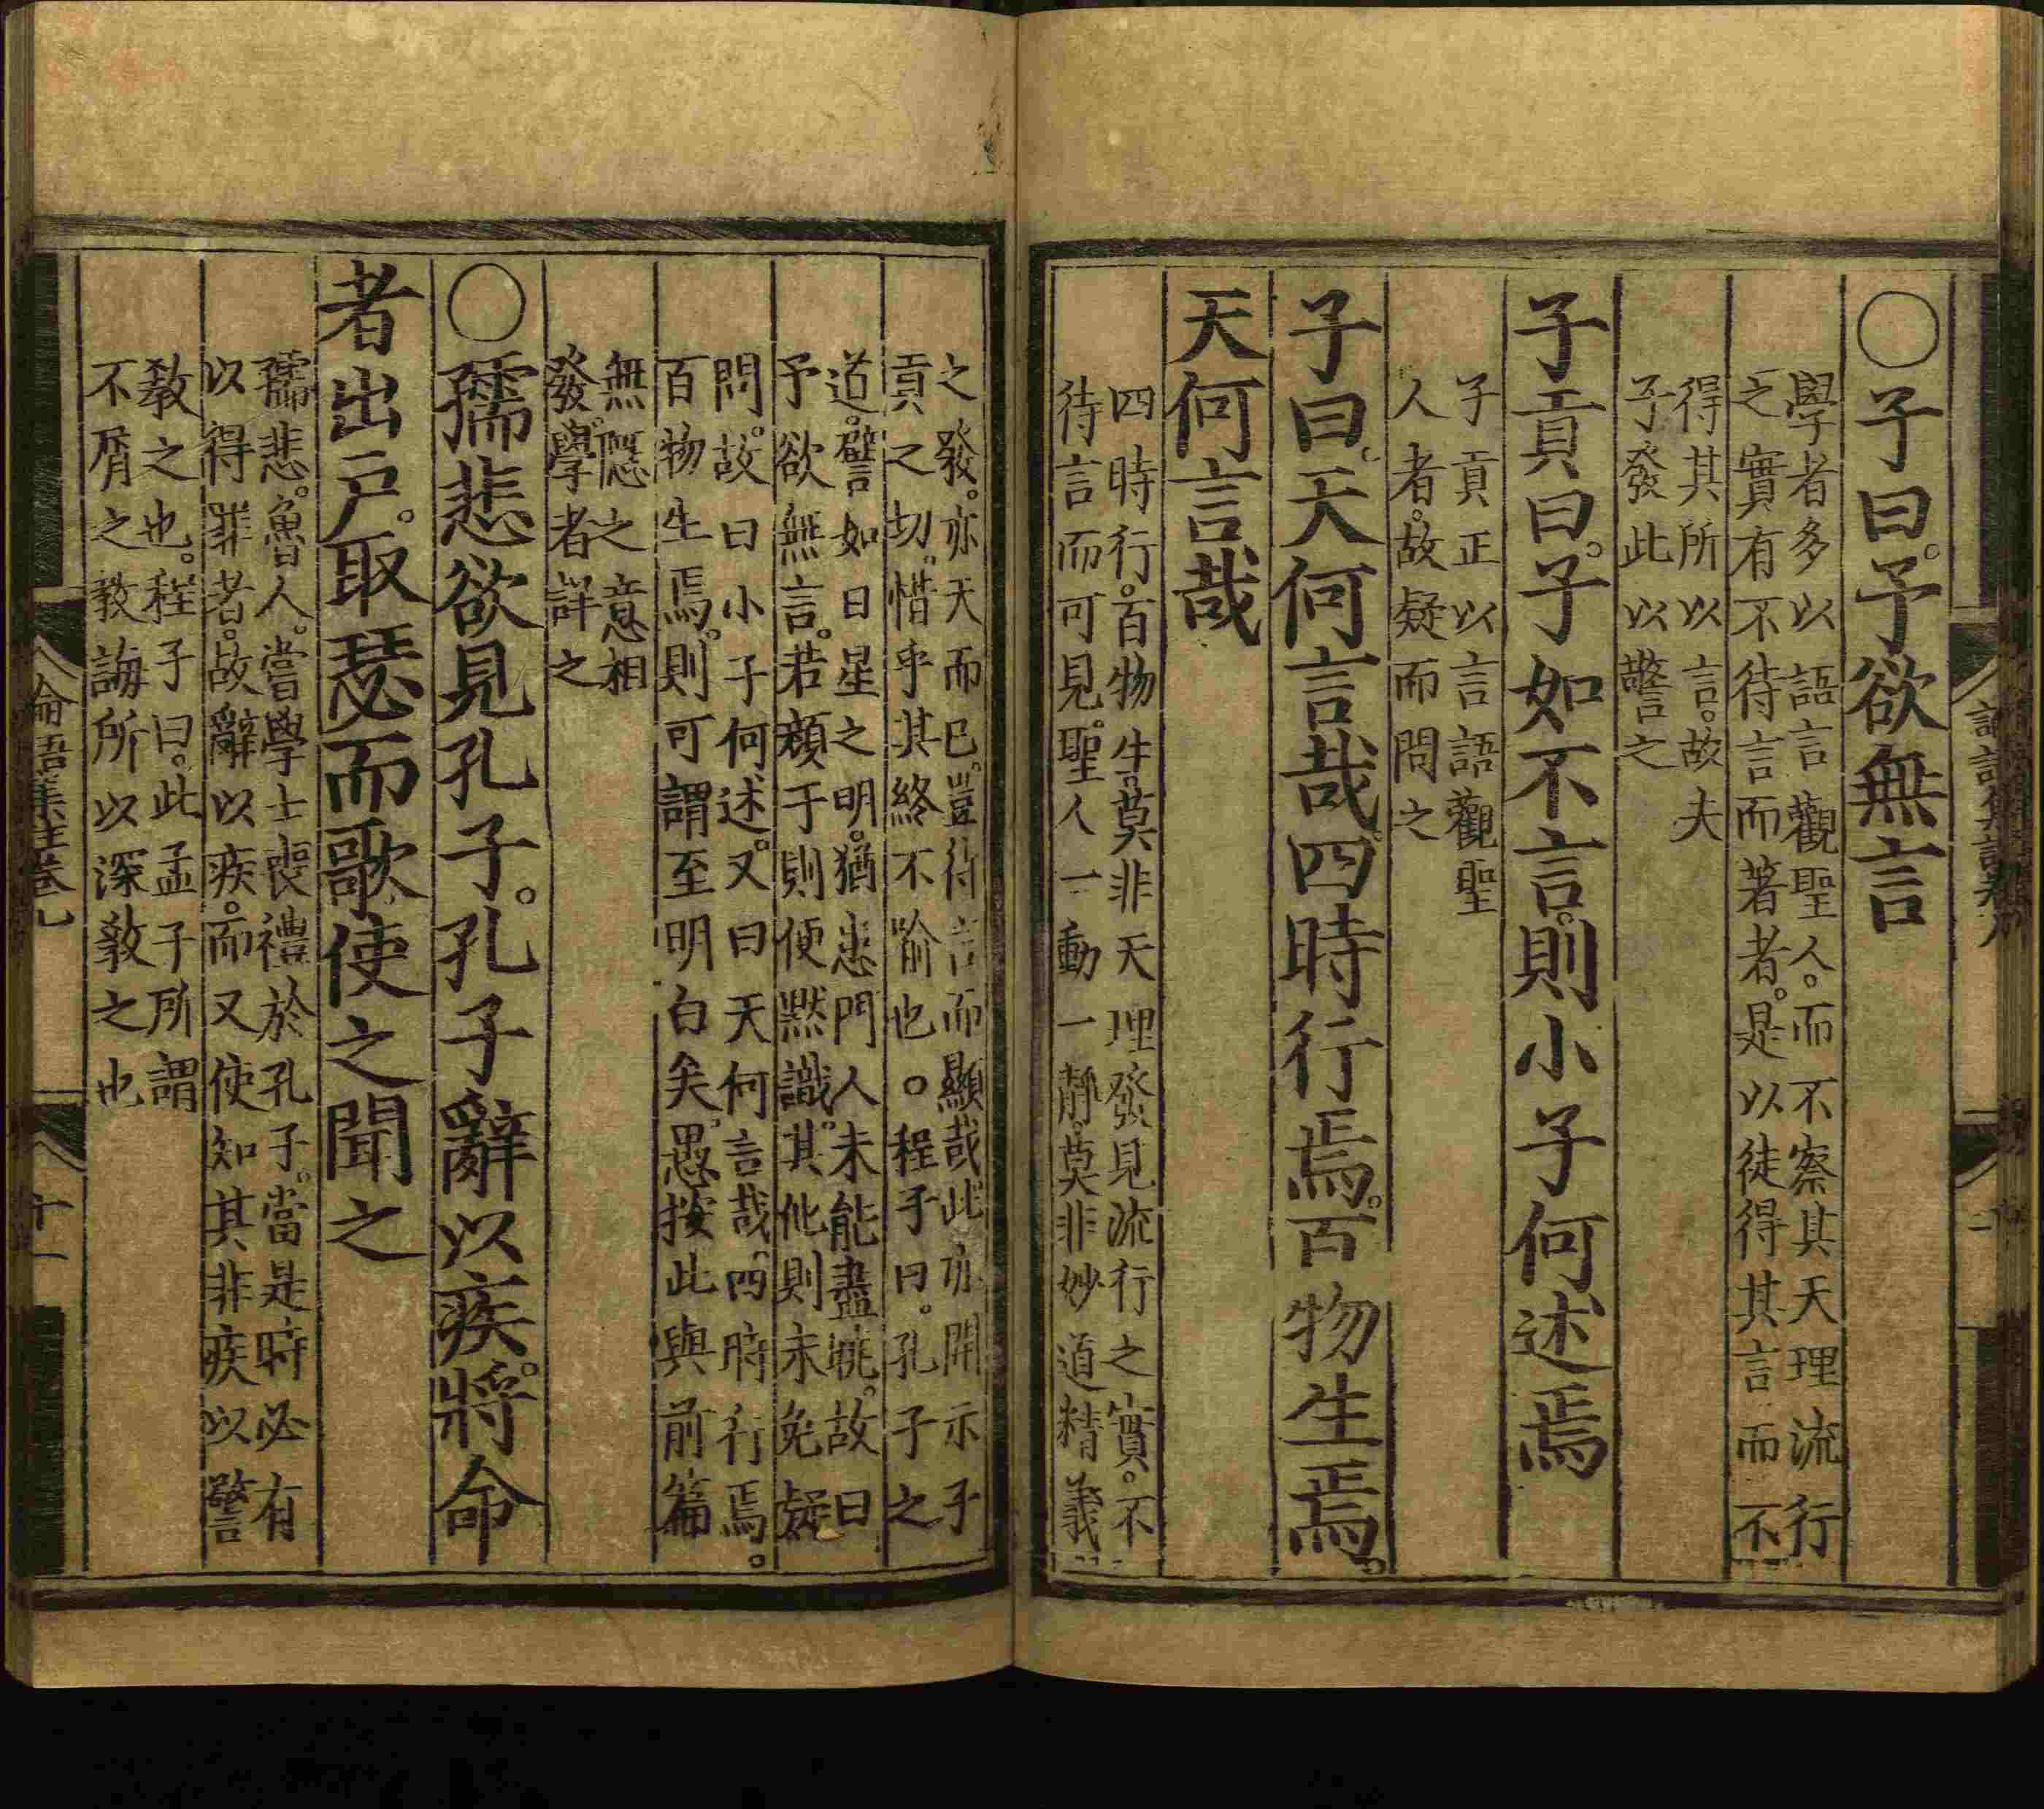 〇子曰。予欲無言
學者多以語言觀聖人。而不察其天理流行
之實有不待言而著者。是以徒得其言而不
得其所以言。故夫
子發此以警之
子貢曰。子如不言。則小子何述焉
子貢正以言語觀聖
人者。故疑而問之
子曰。天何言哉。四時行焉。百物生焉。
天何言哉
四時行。百物生。莫非天理發見流行之實。不
待言而可見。聖人一動一靜。莫非妙道精義
之發。亦天而已。豈待言而顯哉。此亦開示子
貢之切。惜乎其終不喻也。○程子曰。孔子之
道。譬如日星之明。猶患門人未能盡曉。故曰
予欲無言。若顏子則便默識。其他則未免疑
問。故曰小子何述。又曰天何言哉。四時行焉。
百物生焉。則可謂至明白矣。愚按此與前篇
無隱之意相
發。學者詳之
〇孺悲欲見孔子。孔子辭以疾。將命
者出戶。取瑟而歌使之聞之
孺悲。魯人。嘗學士喪禮於孔子。當是時必有
以得罪者。故辭以疾。而又使知其非疾以警
教之也。程子曰。此孟子所謂
不屑之教誨所以深教之也
論語集註卷九
十一